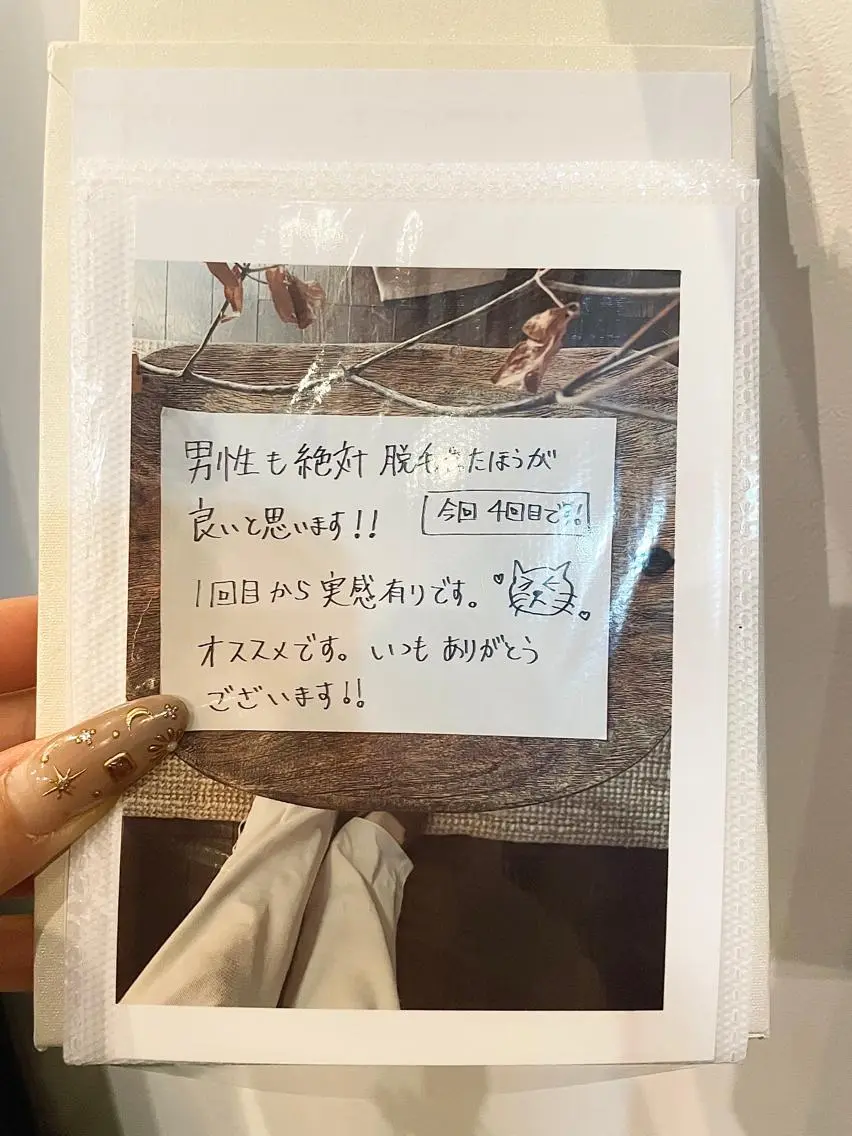 男性も絶対 脱毛したほうが
良いと思います!!
今回 4回目です!
1回目から実感有りです。
オススメです。いつもありがとう
ございます!!